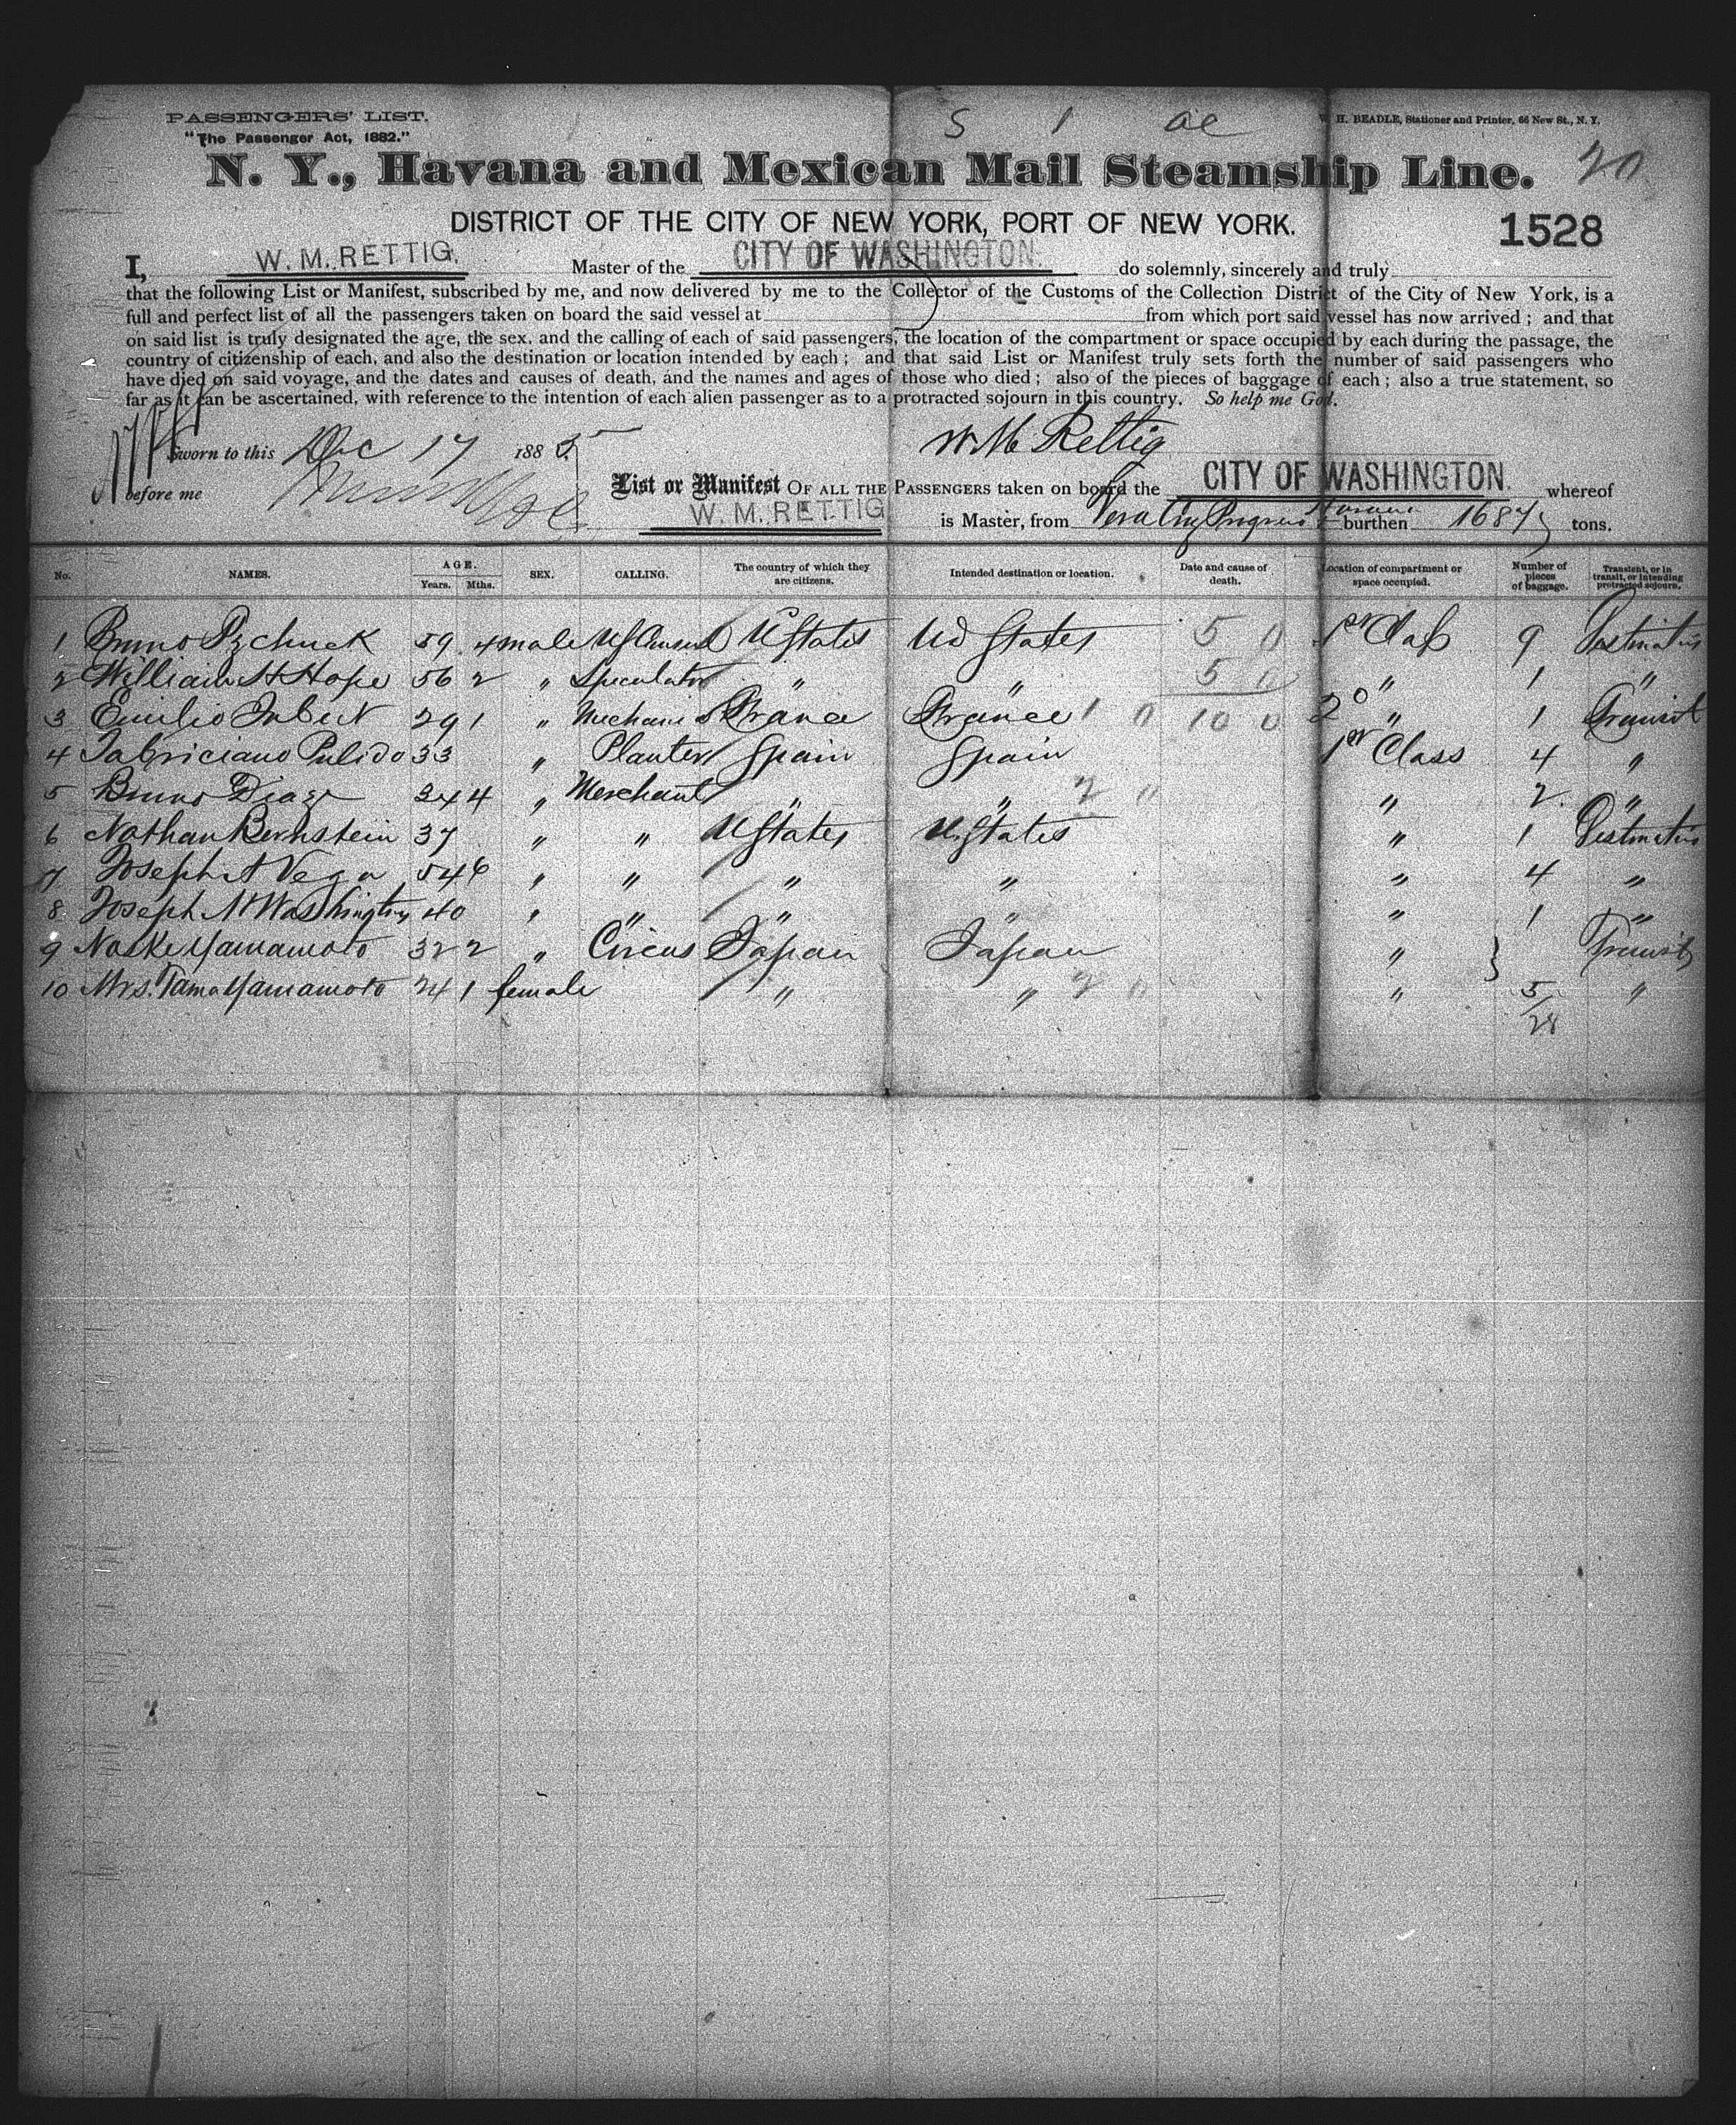 S 1 ae
PASSENGERS' LIST.
"The Passenger Act, 1882."
W. H. BEADLE, Stationer and Printer, 66 New St., N. Y.
N. Y., Havana and Mexican Mail Steamship Line.
20
DISTRICT OF THE CITY OF NEW YORK, PORT OF NEW YORK.
1528
I, W. M. RETTIG. Master of the CITY OF WASHINGTON. do solemnly, sincerely and truly
that the following List or Manifest, subscribed by me, and now delivered by me to the Collector of the Customs of the Collection District of the City of New York, is a
full and perfect list of all the passengers taken on board the said vessel at from which port said vessel has now arrived; and that
on said list is truly designated the age, the sex, and the calling of each of said passengers, the location of the compartment or space occupied by each during the passage, the
country of citizenship of each, and also the destination or location intended by each; and that said List or Manifest truly sets forth the number of said passengers who
have died on said voyage, and the dates and causes of death, and the names and ages of those who died; also of the pieces of baggage of each; also a true statement, so
far as it can be ascertained, with reference to the intention of each alien passenger as to a protracted sojourn in this country. So help me God.
Sworn to this Dec 17 1885 W M Rettig
before me
List or Manifest OF ALL THE PASSENGERS taken on board the CITY OF WASHINGTON. whereof
W. M. RETTIG is Master, from Vera Cruz Progreso & Havana burthen 1687 tons.
No. NAMES. AGE. Years. Mths. SEX. CALLING. The country of which they are citizens. Intended destination or location. Date and cause of death. Location of compartment or space occupied. Number of pieces of baggage. Transient, or in transit, or intending protracted sojourn.
1 Bruno Pzchuck 59 4 male US Consul U States Ud States 5 0 1er Class 9 Destination
2 William H Hope 56 2 " Speculator " " 5 0 " 1 "
3 Emilio Imbert 29 1 " Mechanic France France 1 0 10 0 2o " 1 Transit
4 Fabriciano Pulido 33 " Planter Spain Spain 1er Class 4 "
5 Bruno Diaz 24 4 " Merchant " " 2 " " 2 "
6 Nathan Bernstein 37 " " U States U. States " 1 Destination
7 Joseph A Vega 54 6 " " " " " 4 "
8 Joseph N Washington 40 " " " " " 1 "
9 Naske Yamamoto 32 2 " Circus Japan Japan " } Transit
10 Mrs. Tama Yamamoto 24 1 female " " 2 0 " 5 "
28